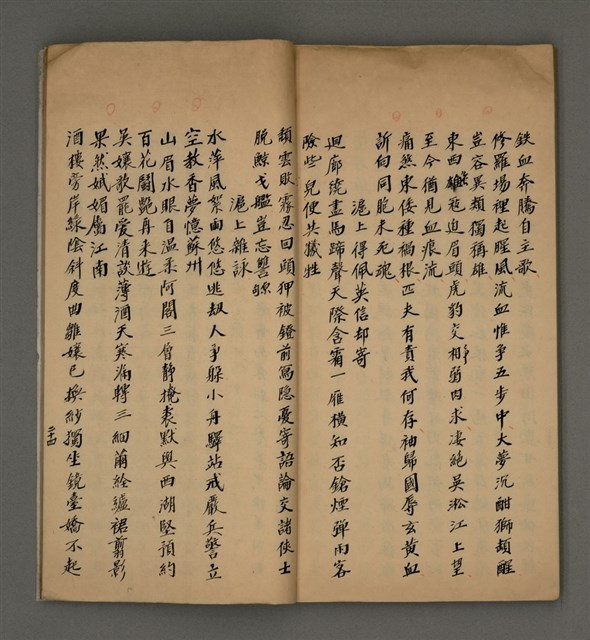 鉄血奔騰自主歌
修羅場裡起腥風流血惟爭五步中大夢沉酣獅頻醒
豈容異類獨稱雄
東西雄寇迫眉頭虎豹交相爭弱肉求凄絕吳淞江上望
至今猶見血痕流
痛煞東倭種禍根匹夫有責我何存袖歸國辱玄黃血
訴向同胞未死魂
滬上得佩英信却寄
迴廊繞畫馬蹄聲天際含霜一雁橫知否鎗煙彈雨客
險些兒便共犧牲
頹雲敗霧忍回頭狎被鐙前寫隱憂寄語論交諸俠士
脫鯨戈艦豈忘讐
滬上雜詠
水萍風絮兩悠悠逃刼人爭躲小舟驛站戒嚴兵警立
空教香夢憶蘇州
山眉水眼自溫柔阿閣三層靜掩裘默與西湖堅預約
百花鬪艷再來遊
吳孃歌罷愛清談薄酒天寒漏轉三細蕳絵纑裙翦影
果然娬媚屬江南
酒樓旁岸綠陰斜度曲雛孃已換紗獨坐鏡臺嬌不起
二十四